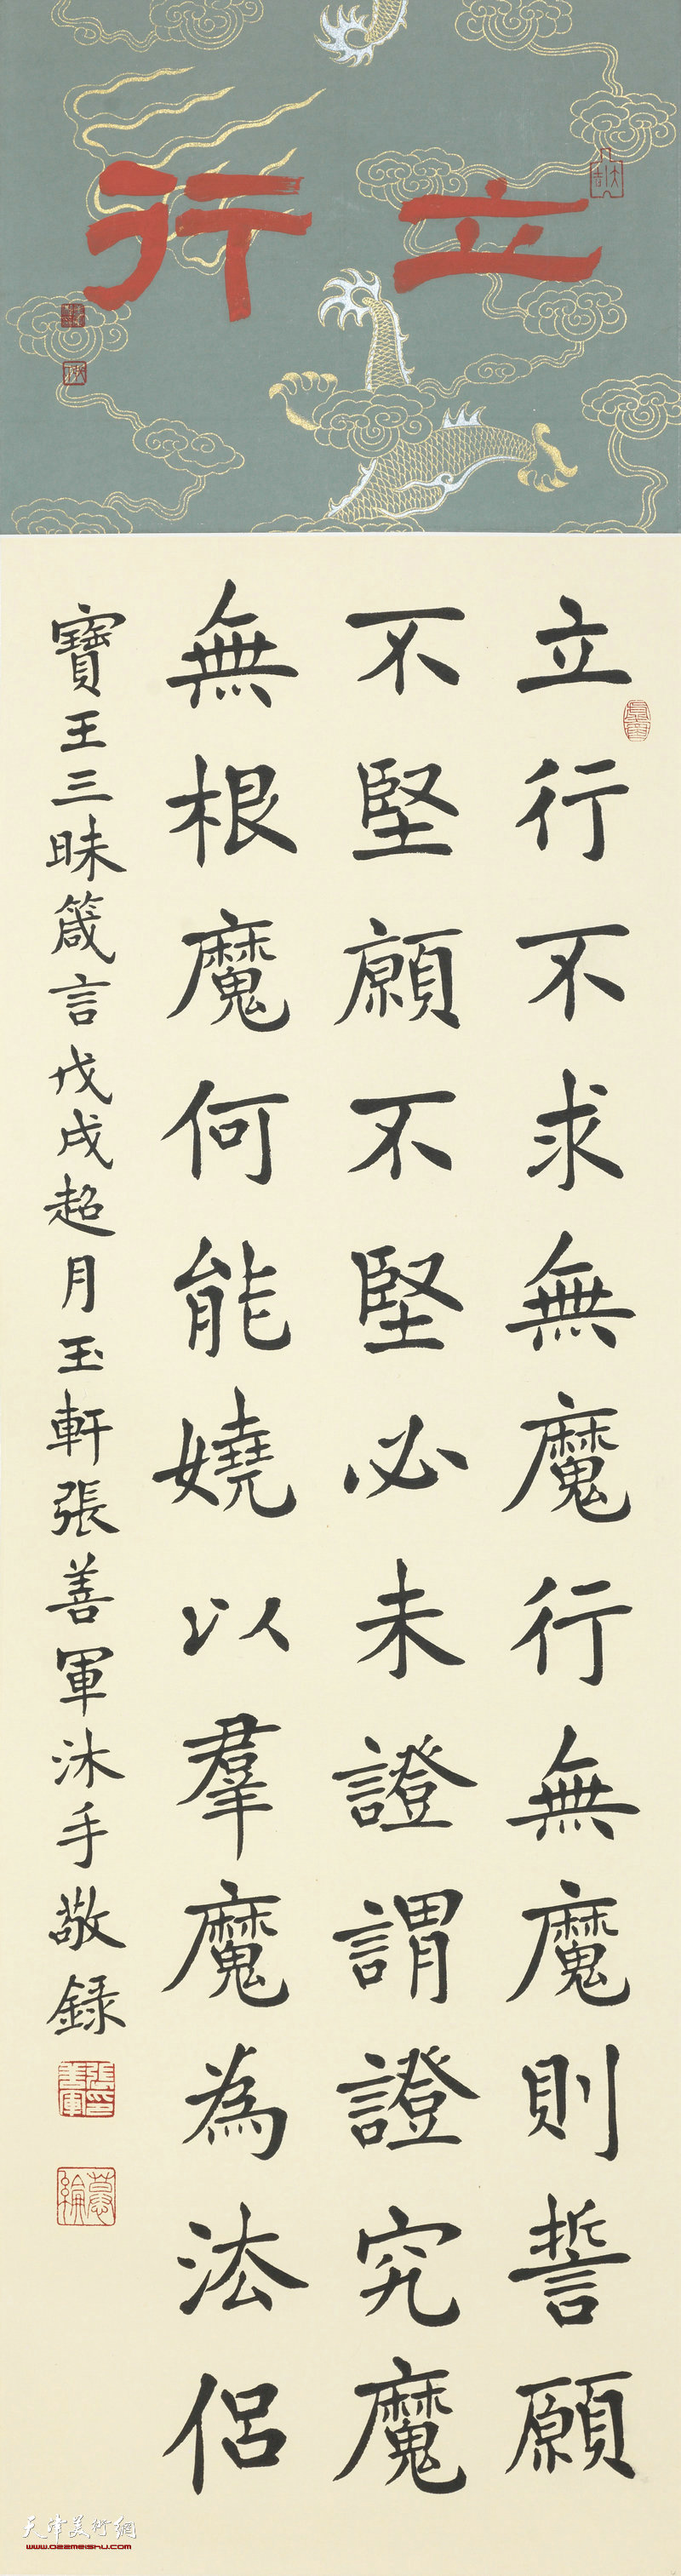 立行
立行不求無魔行無魔則誓願
不堅願不堅必未證謂證究魔
無根魔何能嬈以羣魔為法侶
寶王三昧箴言戊戌超月玉軒張善軍沐手敬錄
張善軍印
天津美術網